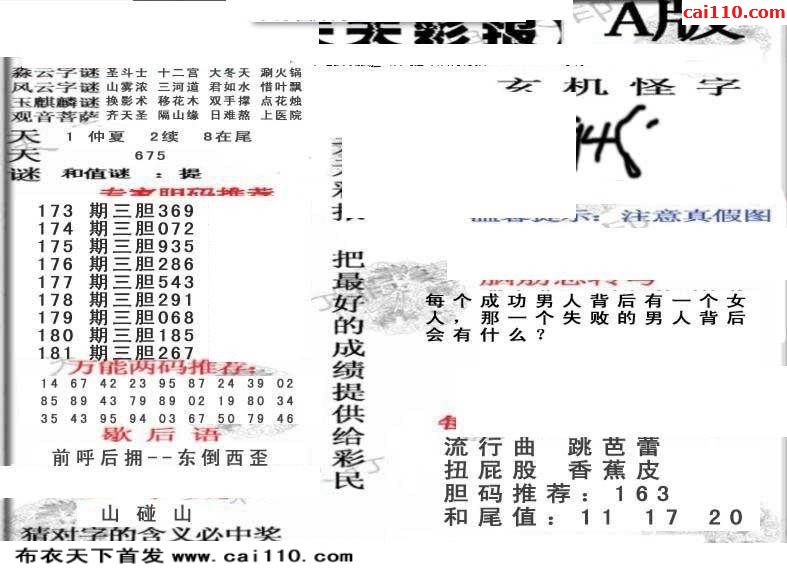 cai110.com
天天彩报
A版
淼云字谜 圣斗士 十二宫 大冬天 涮火锅
风云字谜 山雾浓 三河道 君如水 惜叶飘
玉麒麟谜 换影术 移花木 双手撑 点花烛
观音菩萨 齐天圣 隔山缘 日难熬 上医院
天 1 仲夏 2续 8在尾
天 675
谜 和值谜 : 提
专家胆码推荐
173 期三胆369
174 期三胆072
175 期三胆935
176 期三胆286
177 期三胆543
178 期三胆291
179 期三胆068
180 期三胆185
181 期三胆267
万能两码推荐:
14 67 42 23 95 87 24 39 02
85 89 43 79 89 02 19 80 34
35 43 95 94 03 67 50 79 46
歇后语
前呼后拥--东倒西歪
山碰山
猜对字的含义必中奖
把最好的成绩提供给彩民
玄机怪字
温馨提示: 注意真假图
脑筋急转弯
每个成功男人背后有一个女
人，那一个失败的男人背后
会有什么？
流行曲 跳芭蕾
扭屁股 香蕉皮
胆码推荐: 163
和尾值: 11 17 20
布衣天下首发 www.cai110.com